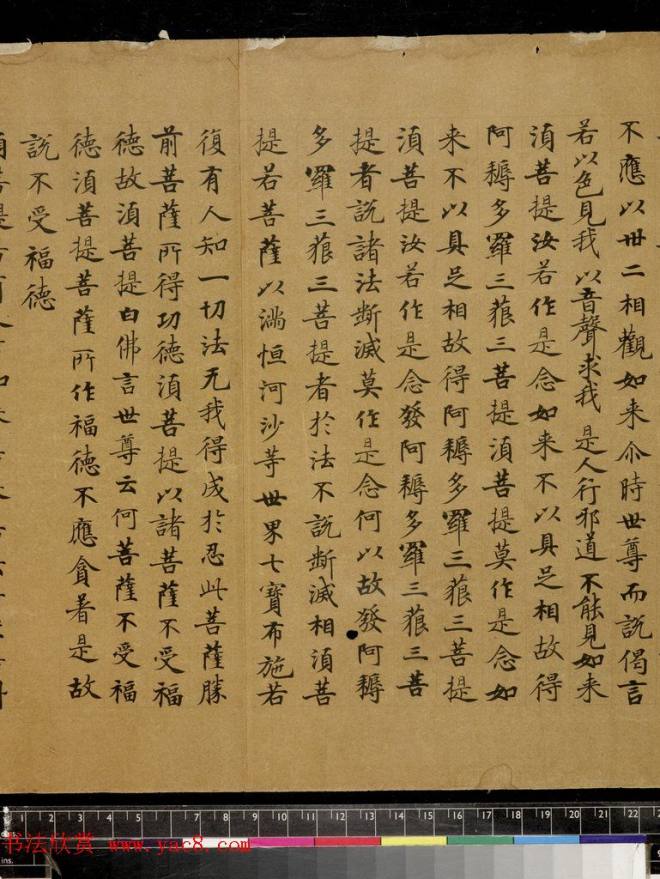 不應以卅二相觀如来尒時世尊而說偈言
若以色見我以音聲求我是人行邪道不能見如来
湏菩提汝若作是念如来不以具足相故得
阿耨多羅三藐三菩提湏菩提莫作是念如
来不以具足相故得阿耨多羅三藐三菩提
湏菩提汝若作是念發阿耨多羅三藐三菩
提者說諸法断滅莫作是念何以故發阿耨
多羅三藐三菩提者於法不說断滅相湏菩
提若菩薩以滿恒河沙等世界七寶布施若
復有人知一切法无我得成於忍此菩薩勝
前菩薩所得功德湏菩提以諸菩薩不受福
德故湏菩提白佛言世尊云何菩薩不受福
德湏菩提菩薩所作福德不應貪著是故
說不受福德
1 2 3 4 5 6 7 8 9 10 11 12 13 14 15 16 17 18 19 20 21 22
书法欣赏 www.yac8.com
ins.